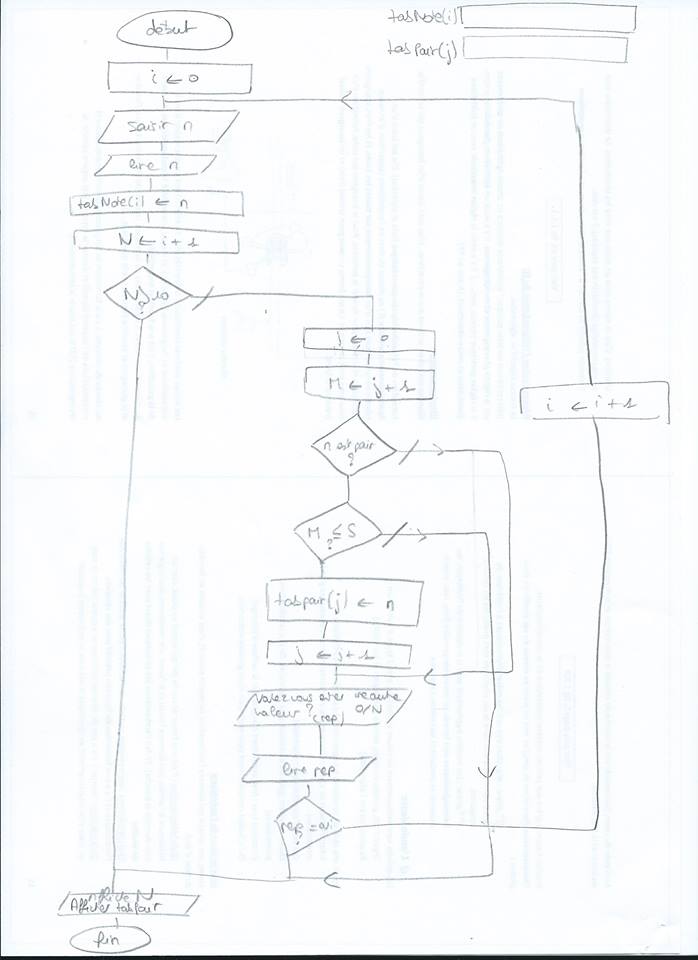 début
tabNote(i)
tabPair(j)
i ← 0
saisir n
lire n
tabNote(i) ← n
N ← i + 1
N > 10
?
j ← 0
M ← j + 1
i ← i + 1
n est pair
?
M ≤ 5
?
tabpair(j) ← n
j ← j + 1
Voulez vous entrer une autre
valeur ? (rep) O/N
lire rep
rep = oui
?
affiche N
Afficher tabpair
fin